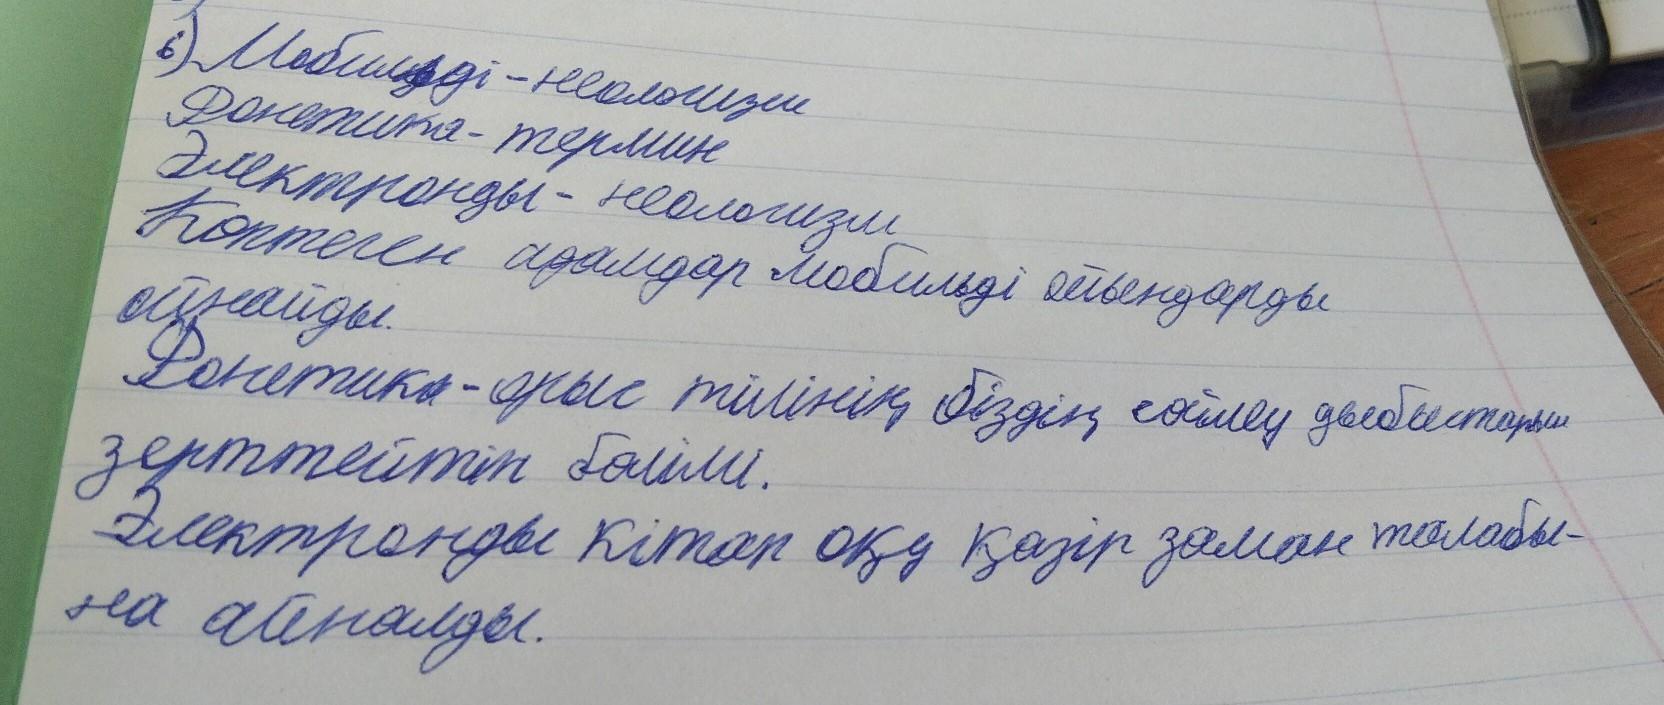 6) Мобильді - неологизм
Фонетика - термин
Электронды - неологизм
Коптеген адамдар мобильді ойындарды
ойнайды.
Фонетика - орыс тілінің біздің сөйлеу дыбыстарын
зерттейтін бөлімі.
Электронды кітап оқу қазір заман талабы-
на айналды.